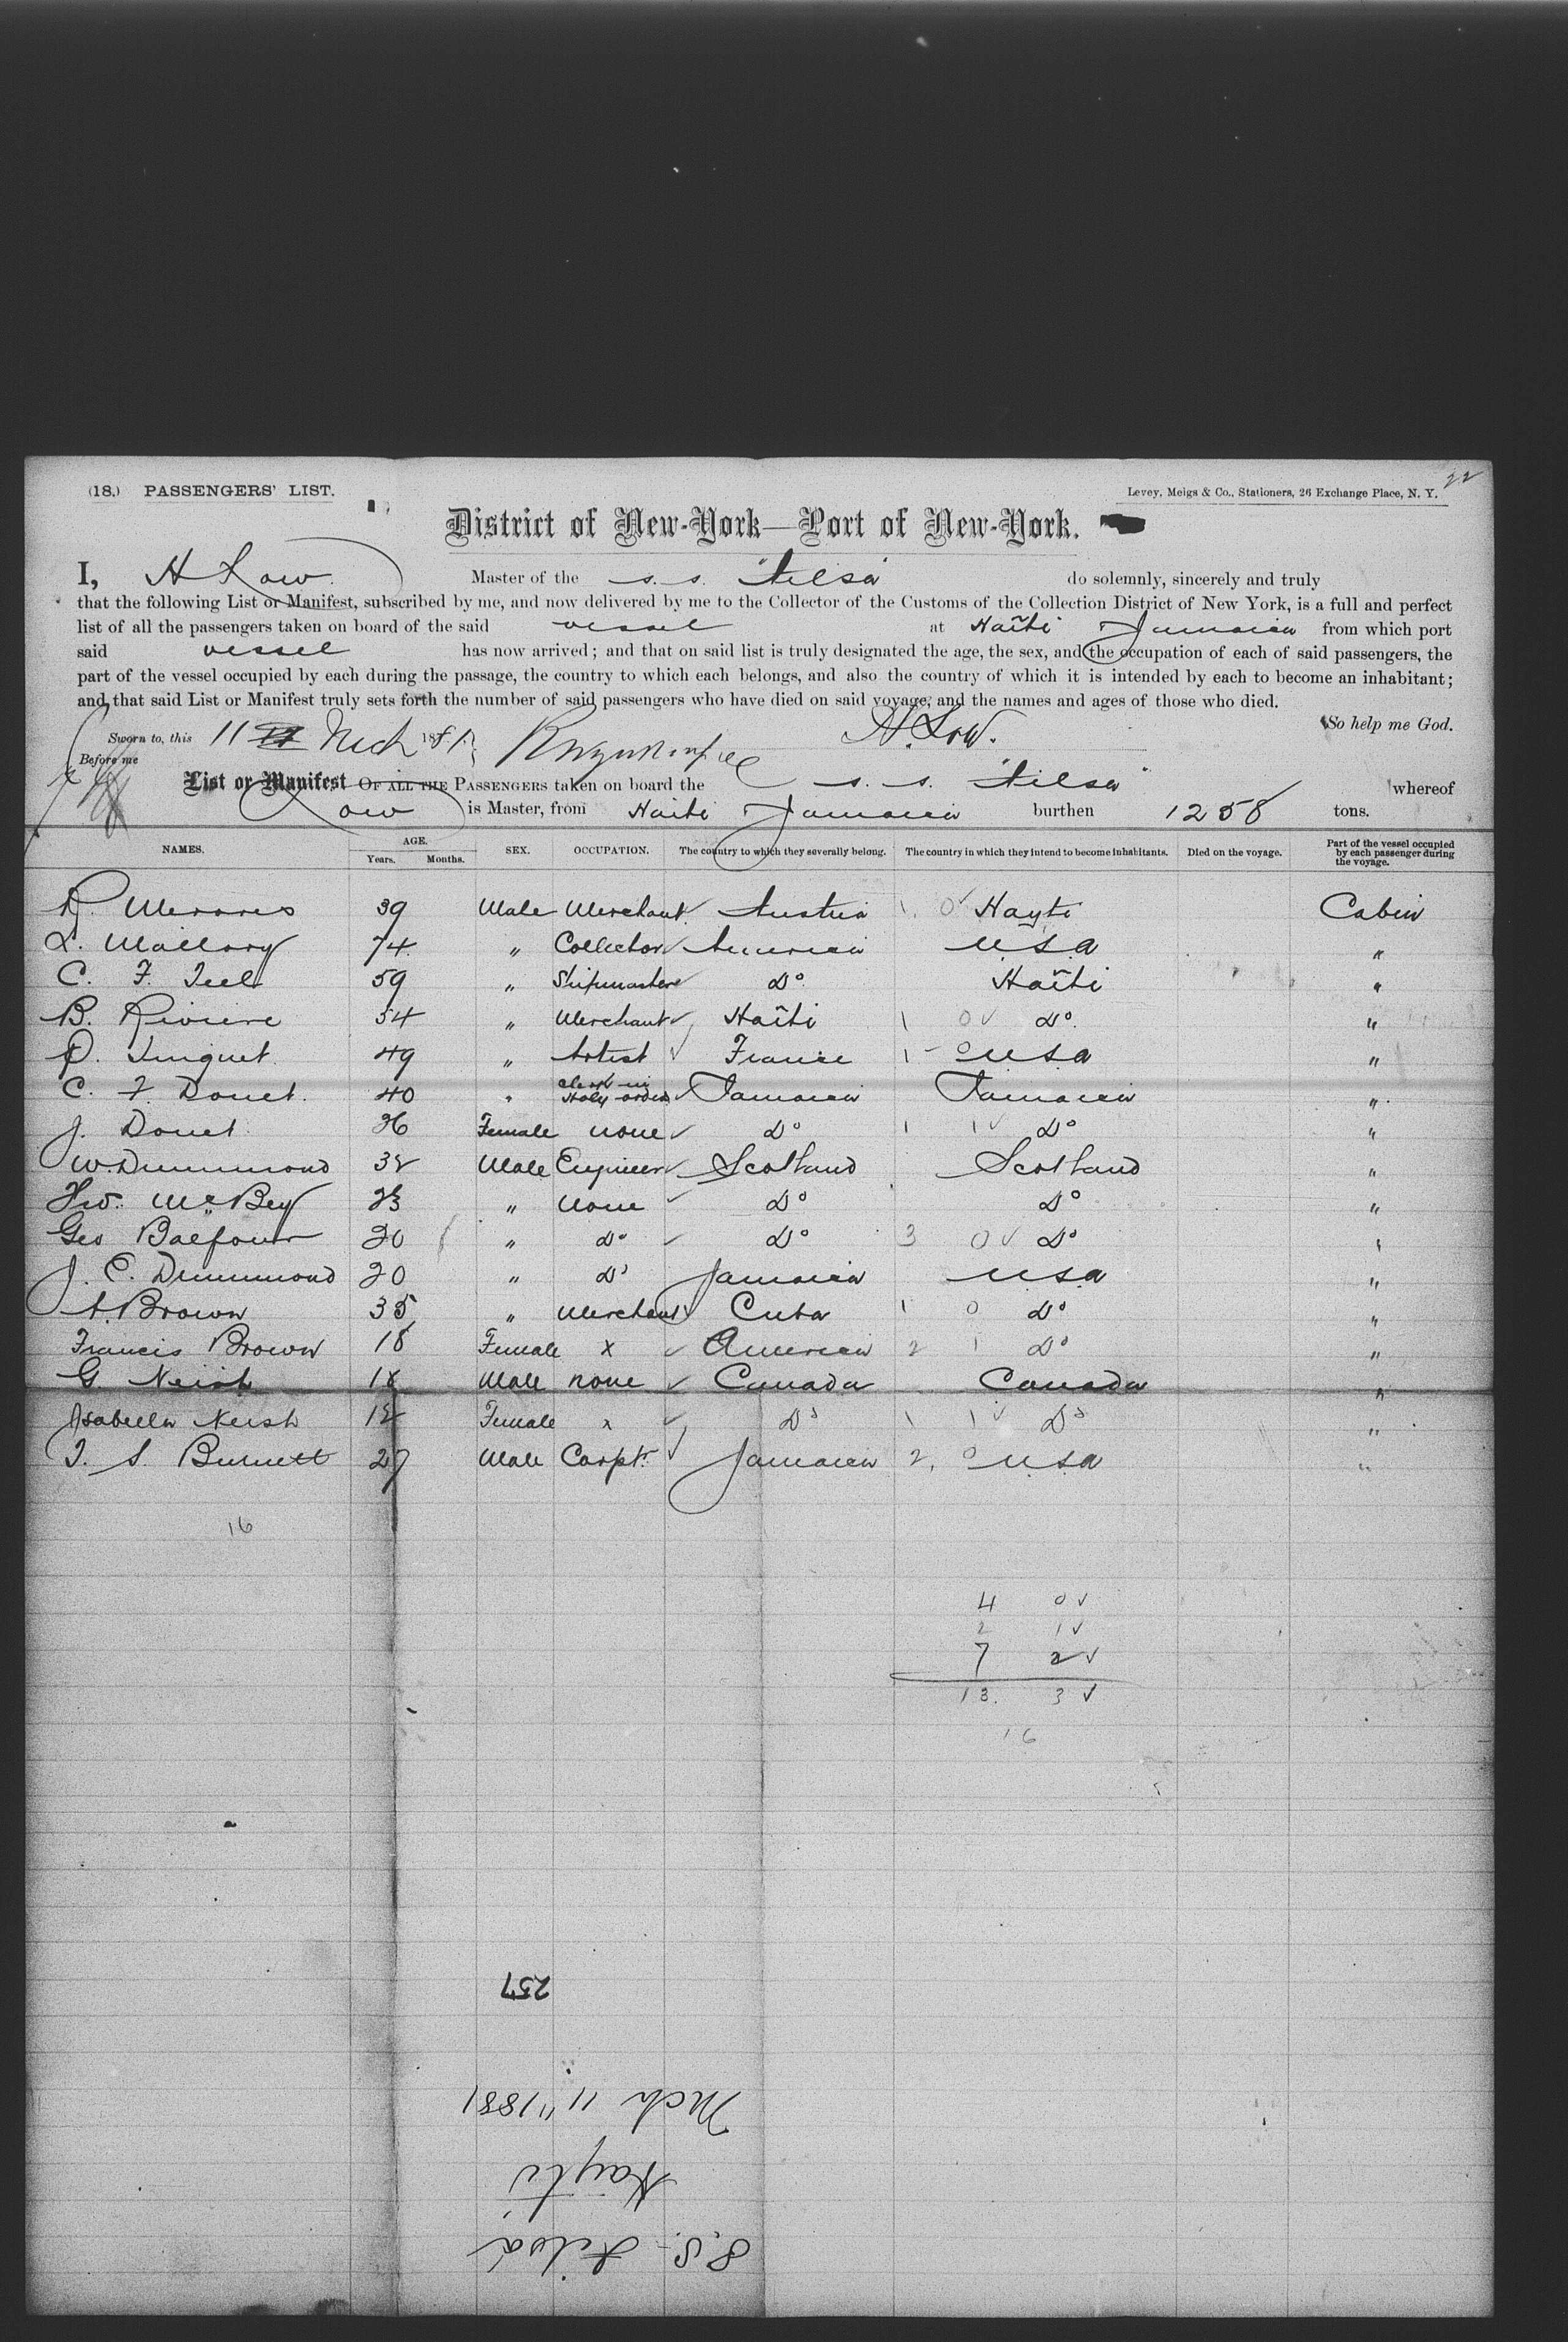 22
(18.) PASSENGERS' LIST.
Levey, Meigs & Co., Stationers, 26 Exchange Place, N. Y.
District of New-York—Port of New-York.
I, A Low Master of the s. s. "Ailsa" do solemnly, sincerely and truly
that the following List or Manifest, subscribed by me, and now delivered by me to the Collector of the Customs of the Collection District of New York, is a full and perfect
list of all the passengers taken on board of the said vessel at Haïti Jamaica from which port
said vessel has now arrived; and that on said list is truly designated the age, the sex, and the occupation of each of said passengers, the
part of the vessel occupied by each during the passage, the country to which each belongs, and also the country of which it is intended by each to become an inhabitant;
and that said List or Manifest truly sets forth the number of said passengers who have died on said voyage, and the names and ages of those who died.
So help me God.
Sworn to, this 11 Mch 1881 A. Low.
Before me
List or Manifest OF ALL THE PASSENGERS taken on board the s. s. "Ailsa" whereof
Low is Master, from Haiti Jamaica burthen 1258 tons.
NAMES. AGE. Years. Months. SEX. OCCUPATION. The country to which they severally belong. The country in which they intend to become inhabitants. Died on the voyage. Part of the vessel occupied by each passenger during the voyage.
39 Male Merchant Austria 1. 0 Hayti Cabin
L. Mallory 74 " Collector America USA "
C. F. Teel 59 " Shipmaster Do Haïti "
B. Riviere 54 " Merchant Haïti 1 0 Do "
49 " Artist France 1 0 USA "
C. F. Douet 40 " Clerk in Holy orders Jamaica Jamaica "
J. Douet 36 Female none Do 1 1 Do "
W Drummond 32 Male Engineer Scotland Scotland "
McBey 23 " None Do Do "
Geo Balfour 20 " Do Do 3 0 Do "
J. C. Drummond 20 " Do Jamaica USA "
A. Brown 35 " Merchant Cuba 1 0 Do "
Francis Brown 18 Female x American 2 1 Do "
G. Neish 18 Male none Canada Canada "
Isabella Neish 12 Female x Do 1 1 Do "
T. S. Burnett 27 Male Carptr Jamaica 2, 0 USA "
16
4 0
2 1
7 2
13. 3
16
257
Mch 11" 1881
Hayti
S.S. Ailsa